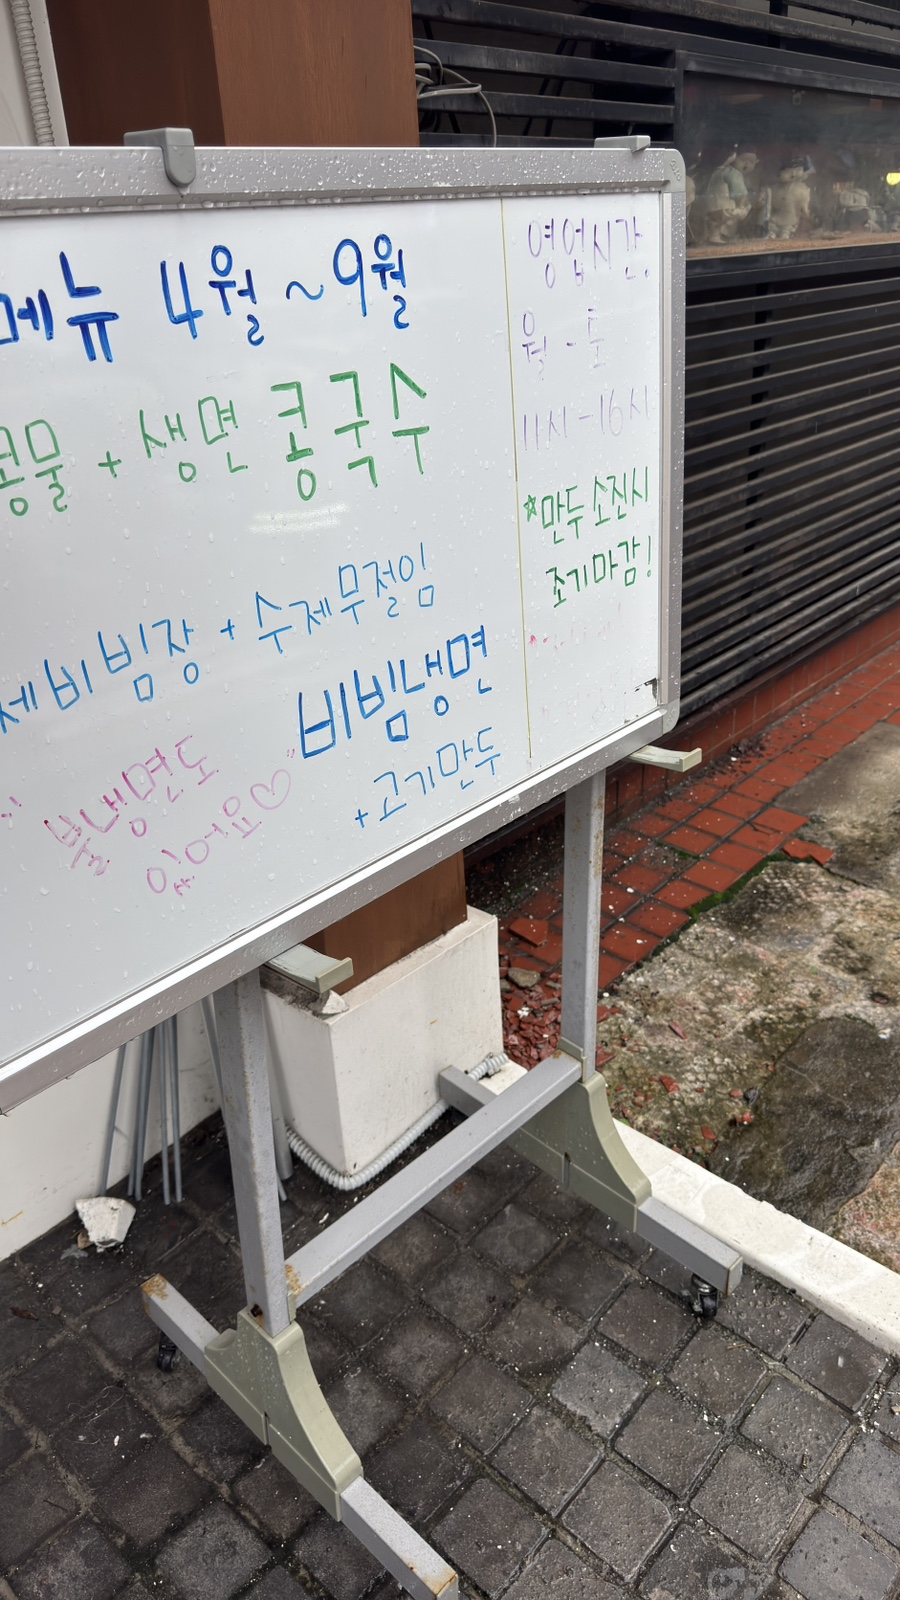 메뉴 4월 ~ 9월
콩물 + 생면 콩국수
제비빔장 + 수제무절임
비빔냉면
+ 고기만두
물냉면도
있어요♡
영업시간.
월 - 토
11시 - 16시
*만두 소진시
조기마감!